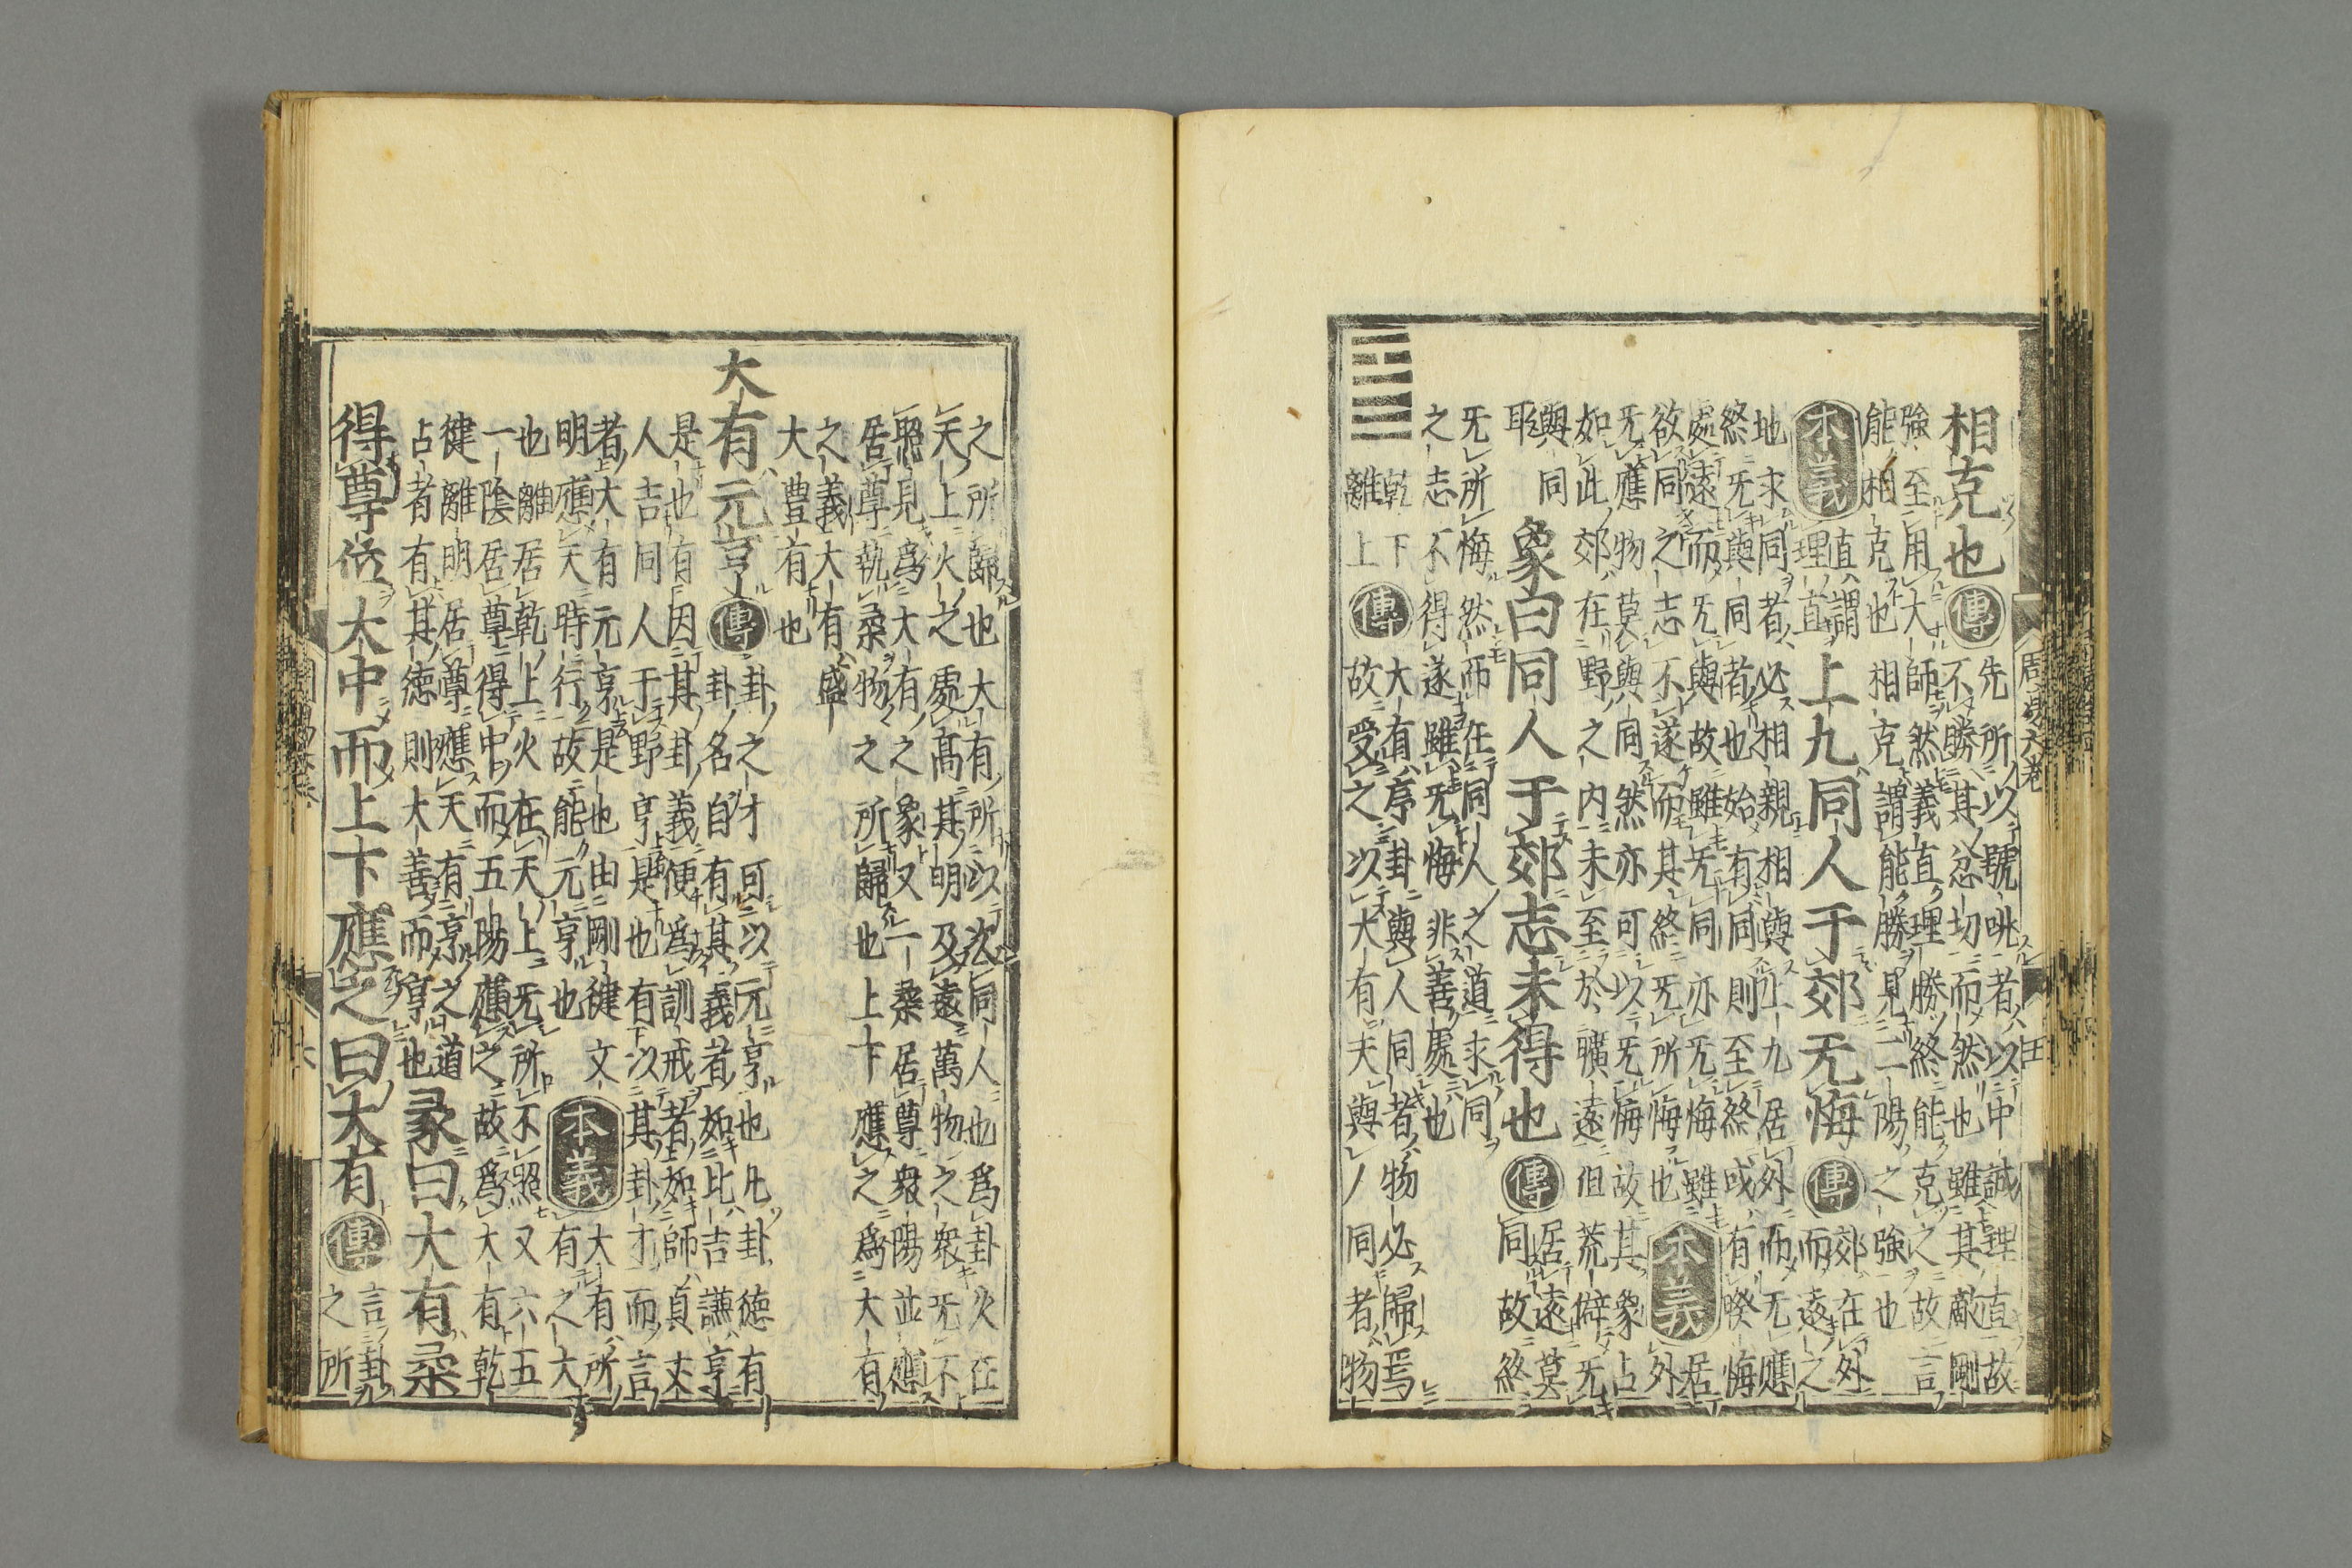 相克也 傳 先所以號咷者以中誠理直故
不勝其忿切而然也雖其敵剛
強至用大師然義直理勝終能克之故言
能相克也相克謂能勝見二陽之強也
本義 直謂
理直 上九同人于郊无悔 傳 郊在外
而遠之
地求同者必相親相與上九居外而无應
終无與同者也始有同則至終或有睽悔
處遠而无與故雖无同亦无悔雖
欲同之志不遂而其終无所悔也 本義 居
外
无應物莫與同然亦可以无悔故其象占
如此郊在野之內未至於曠遠但荒僻无
與同
耳 象曰同人于郊志未得也 傳 居遠莫
同故終
无所悔然而在同人之道求同
之志不得遂雖无悔非善處也
乾下
離上 傳 大有序卦與人同者物必歸焉
故受之以大有夫與人同者物
之所歸也大有所以次同人也爲卦火在
天上火之處高其明及遠萬物之衆无不
照見爲大有之象又一柔居尊衆陽並應
居尊執柔物之所歸也上下應之爲大有
之義大有盛
大豐有也
大有元亨 傳 卦之才可以元亨也凡卦德有
卦名自有其義者如比吉謙亨
是也有因其卦義便爲訓戒者如師貞丈
人吉同人于野亨是也有以其卦才而言
者大有元亨是也由剛健文
明應天時行故能元亨也 本義 大有所
有之大
也離居乾上火在天上无所不照又六五
一陰居尊得中而五陽應之故爲大有乾
健離明居尊應天有亨之道
占者有其德則大善而亨也 彖曰大有柔
得尊位大中而上下應之曰大有 傳 言卦
之所
周易大卷